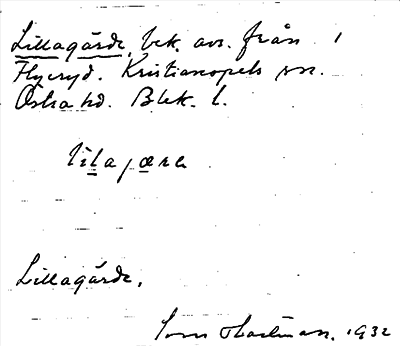 Lillagärde, bek. avs. från
Flyeryd. Kristianopels sn.
Östra hd. Blek. l.
lilajære
Lillagärde.
Hartman. 1932